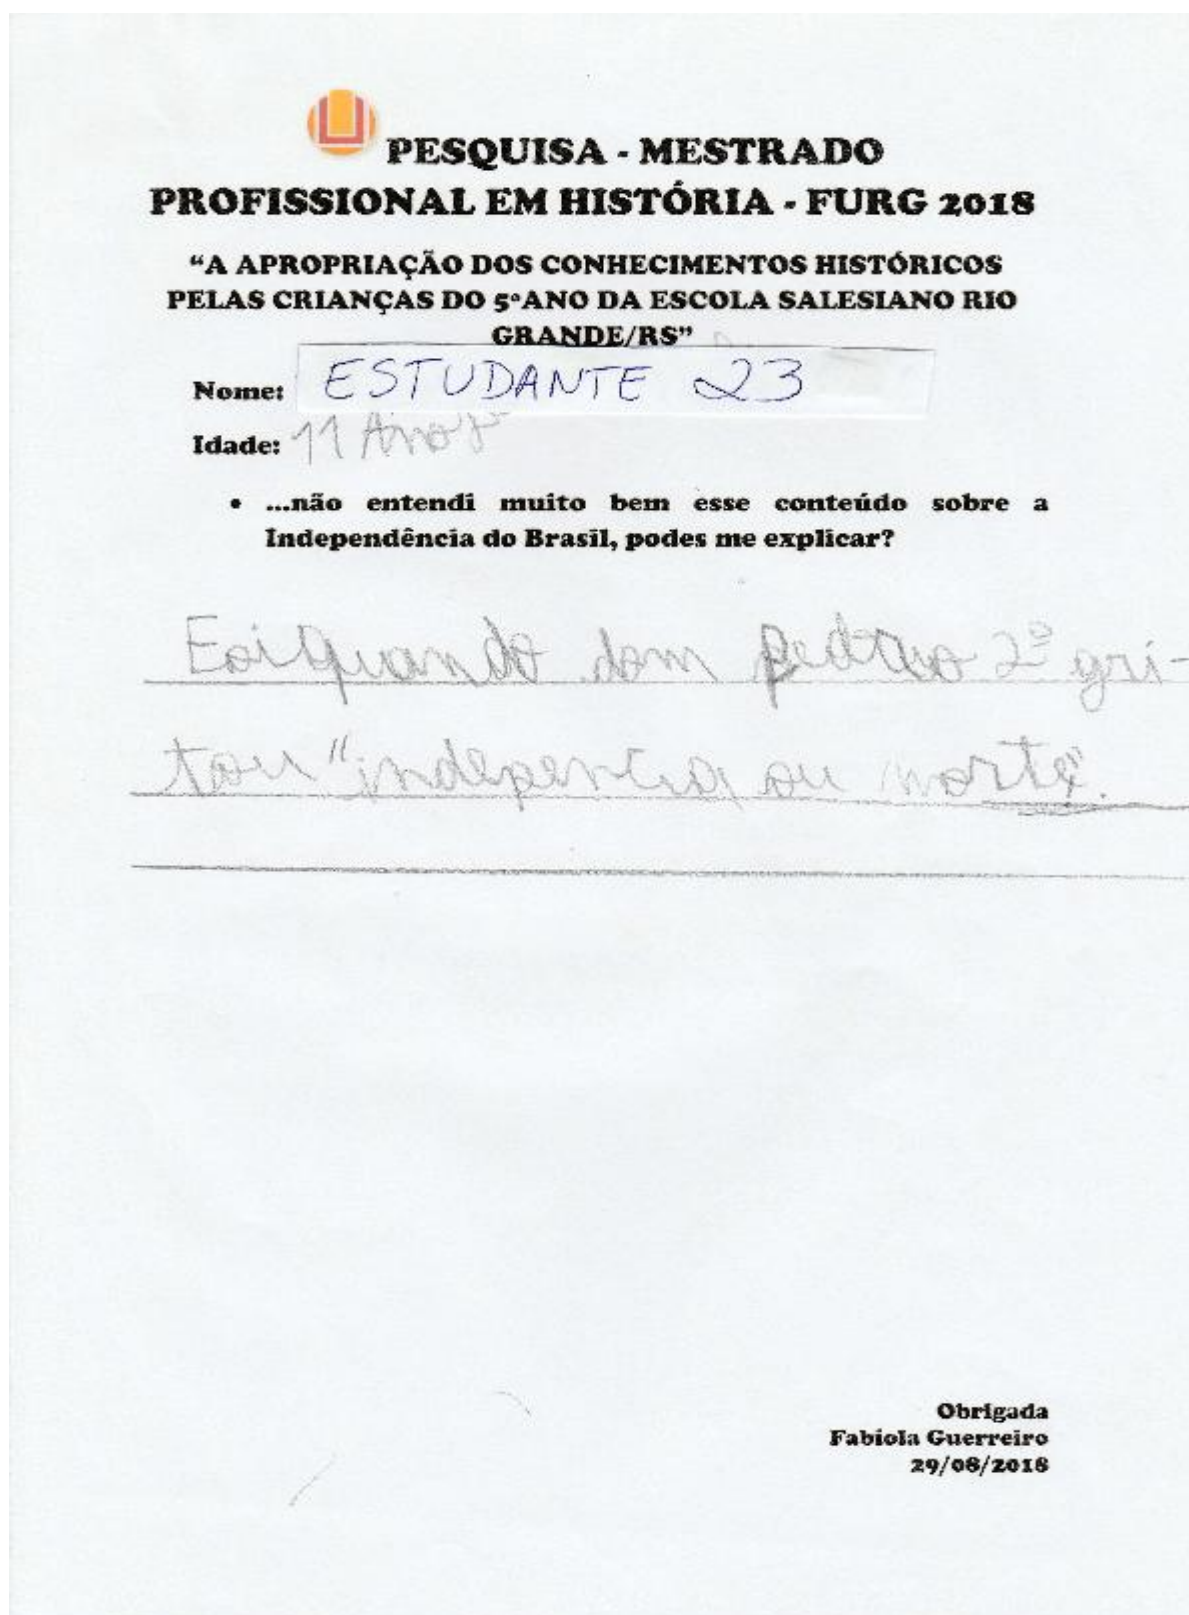 PESQUISA - MESTRADO
PROFISSIONAL EM HISTÓRIA - FURG 2018
“A APROPRIAÇÃO DOS CONHECIMENTOS HISTÓRICOS
PELAS CRIANÇAS DO 5ºANO DA ESCOLA SALESIANO RIO
GRANDE/RS”
Nome: ESTUDANTE 23
Idade: 11 Anos
• ...não entendi muito bem esse conteúdo sobre a
Independência do Brasil, podes me explicar?
Foi quando dom pedro 2º gri-
tou "indepencia ou morte".
Obrigada
Fabiola Guerreiro
29/08/2018